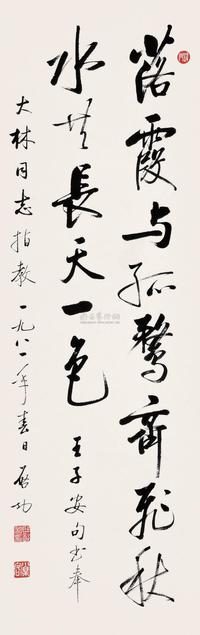 落霞与孤鹜齊飛秋
水共長天一色
王子安句書奉
大林同志指教一九八一年春日啟功